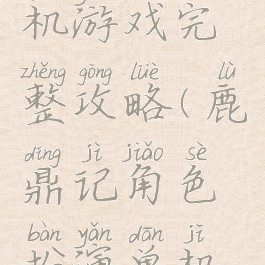 机游戏完
zhěng gōng lüè lù
整攻略(鹿
dǐng jì jiǎo sè
鼎记角色
bàn yǎn dān jī
扮演单机